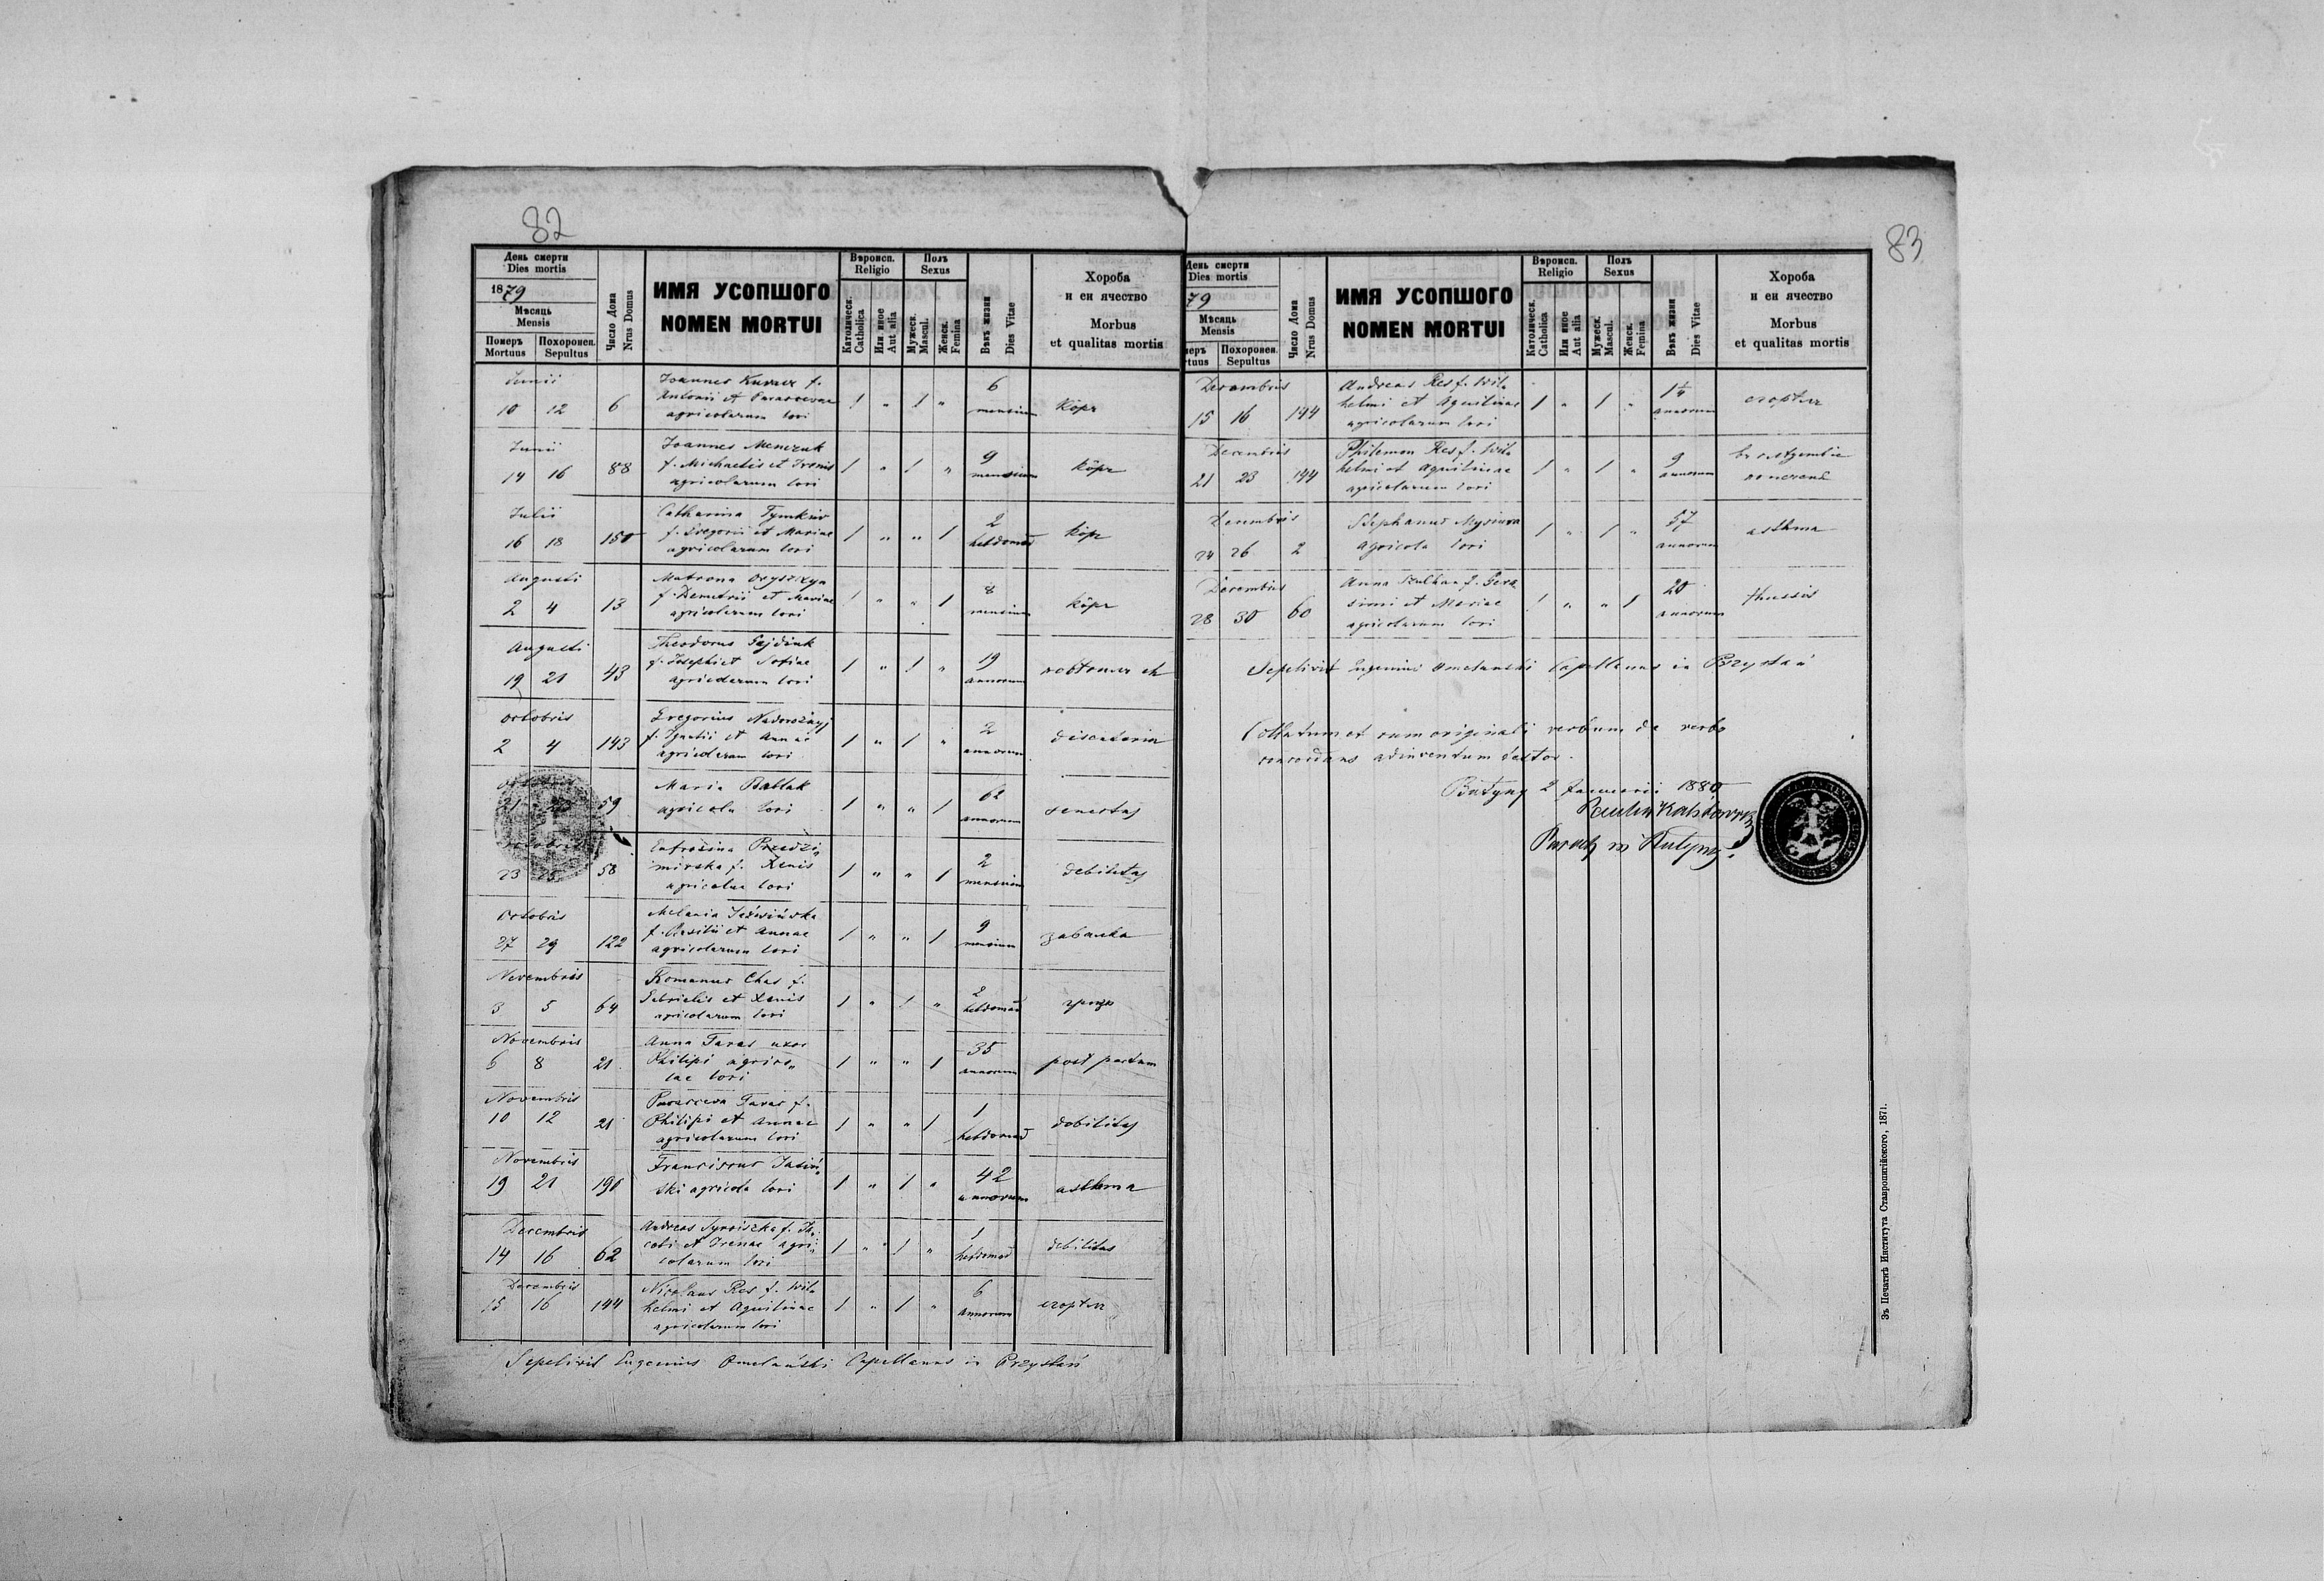 82
День смерти
Dies mortis
1879
Мѣсяць
Mensis
Померъ
Mortuus
Похоронен.
Sepultus
Число Дома
Nrus Domus
ИМЯ УСОПШОГО
NOMEN MORTUI
Вѣроисп.
Religio
Католическ.
Catholica
Или иное
Aut alia
Полъ
Sexus
Мужеск.
Mascul.
Женск.
Femina
Вѣкъ жизни
Dies Vitae
Хороба
и еи ячество
Morbus
et qualitas mortis
Junii
10 12 6
Joannes f.
Antonii et Parascevae
agricolarum lori
1 " 1 "
6
mensium
Köpr
Junii
14 16 88
Joannes Menczuk
f. Michaelis et Irenis
agricolarum lori
1 " 1 "
9
mensium
Köpr
Julii
16 18 150
Catharina Tymkiw
f. Gregorii et Mariae
agricolarum lori
1 " " 1
2
hebdomad
Köpr
Augusti
2 4 13
Matrona
f. Demetrii et Mariae
agricolarum lori
1 " " 1
8
mensium
Köpr
Augusti
19 21 43
Theodorus Gajdiuk
f. Josephi et Sofiae
agricolarum lori
1 " 1 "
19
annorum
Octobris
2 4 143
Gregorius Nadorożnyj
f. Ignatii et Annae
agricolarum lori
1 " 1 "
2
annorum
discenteria
21 59
Maria Bablak
agricola lori
1 " " 1
62
annorum
senectus
23 25 58
Eufrozina Przedzi„
mirska f. Xenis
agricolae lori
1 " " 1
2
mensium
debilitas
Octobris
27 29 122
Melania
f. Basilii et Annae
agricolarum lori
1 " " 1
9
mensium
завалка
Novembris
3 5 64
Romanus Chas f.
Gabrielis et Xenis
agricolarum lori
1 " 1 "
2
hebdomad
Novembris
6 8 21
Anna Taras uxor
Philipi agrico„
lae lori
1 " " 1
35
annorum
post partum
Novembris
10 12 21
Parasceva Taras f.
Philipi et Annae
agricolarum lori
1 " " 1
1
hebdomad
debilitas
Novembris
19 21 190
Franciscus Jasiń„
ski agricola lori
1 " 1 "
42
annorum
asthma
Decembris
14 16 62
Andreas f. Ja„
cobi et Irenae agri„
colarum lori
1 " 1 "
1
hebdomad
debilitas
Decembris
15 16 144
Nicolaus Res f. Wil„
helmi et Aquilinae
agricolarum lori
1 " 1 "
6
annorum
Sepelivit Eugenius Omelański Capellanus in Przystań
83
День смерти
Dies mortis
79
Мѣсяць
Mensis
Похоронен.
Sepultus
Число Дома
Nrus Domus
ИМЯ УСОПШОГО
NOMEN MORTUI
Вѣроисп.
Religio
Католическ.
Catholica
Или иное
Aut alia
Полъ
Sexus
Мужеск.
Mascul.
Женск.
Femina
Вѣкъ жизни
Dies Vitae
Хороба
и еи ячество
Morbus
et qualitas mortis
Decembris
15 16 144
Andreas Res f. Wil„
helmi et Aquilinae
agricolarum lori
1 " 1 "
1¼
annorum
Decembris
21 23 144
Philemon Res f. Wil„
helmi et Aquilinae
agricolarum lori
1 " 1 "
9
annorum
Decembris
24 26 2
Stephanus Mysiura
agricola lori
1 " 1 "
57
annorum
asthma
Decembris
28 30 60
Anna f. Gera„
simi et Mariae
agricolarum lori
1 " " 1
20
annorum
thussis
Sepelivit Eugenius Omelanski Capellanus in Przystań
Collatum et cum originali verbum de verbo
concordans adinventum testor.
Butyny 2 Januarii 1880
Зъ Печатнѣ Института Ставропигійского, 1871.